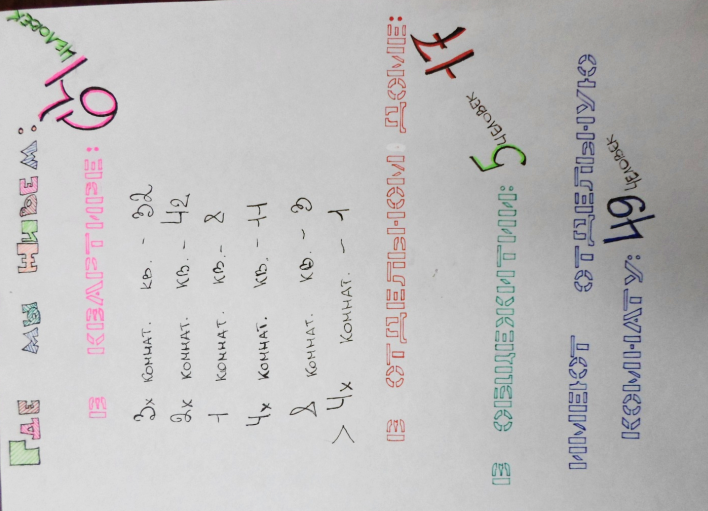 ГДЕ МЫ ЖИВЕМ:
В КВАРТИРЕ: 97 ЧЕЛОВЕК
3х КОМНАТ. КВ. - 32
2х КОМНАТ. КВ. - 42
1 КОМНАТ. КВ. - 8
4х КОМНАТ. КВ. - 11
8 КОМНАТ. КВ. - 3
> 4х КОМНАТ. - 1
В ОТДЕЛЬНОМ ДОМЕ: 17
В ОБЩЕЖИТИИ: 5 ЧЕЛОВЕК
ИМЕЮТ ОТДЕЛЬНУЮ
КОМНАТУ: 49 ЧЕЛОВЕК